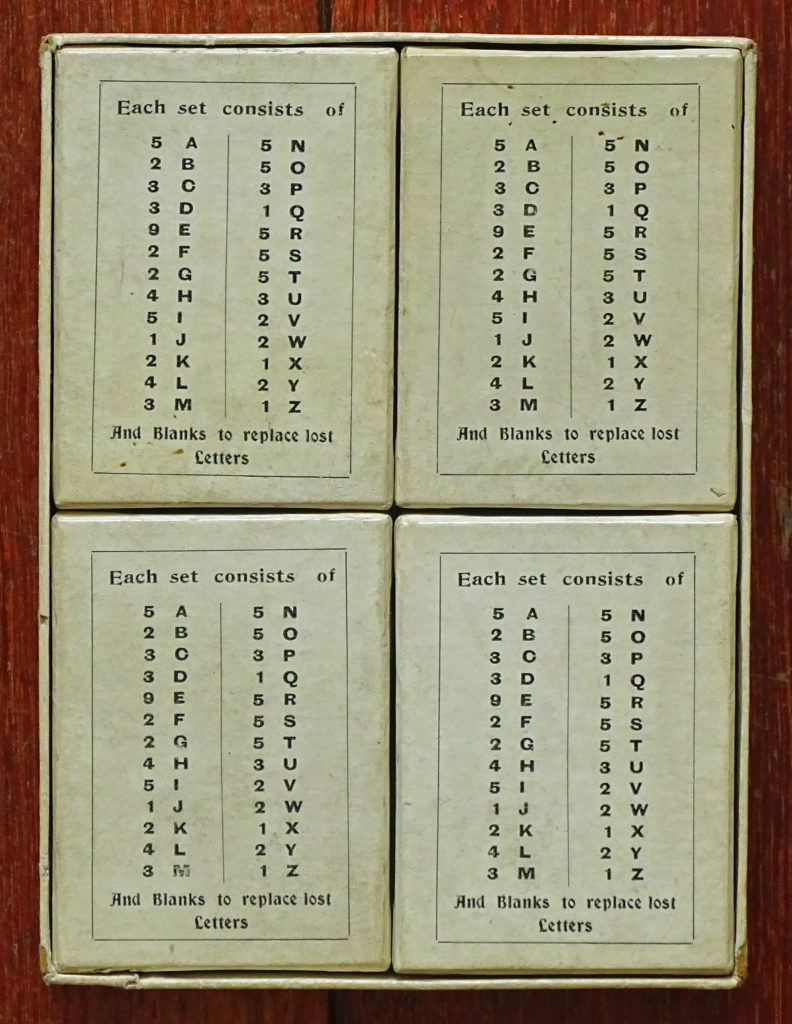 Each set consists of
5 A 5 N
2 B 5 O
3 C 3 P
3 D 1 Q
9 E 5 R
2 F 5 S
2 G 5 T
4 H 3 U
5 I 2 V
1 J 2 W
2 K 1 X
4 L 2 Y
3 M 1 Z
And Blanks to replace lost
Letters
Each set consists of
5 A 5 N
2 B 5 O
3 C 3 P
3 D 1 Q
9 E 5 R
2 F 5 S
2 G 5 T
4 H 3 U
5 I 2 V
1 J 2 W
2 K 1 X
4 L 2 Y
3 M 1 Z
And Blanks to replace lost
Letters
Each set consists of
5 A 5 N
2 B 5 O
3 C 3 P
3 D 1 Q
9 E 5 R
2 F 5 S
2 G 5 T
4 H 3 U
5 I 2 V
1 J 2 W
2 K 1 X
4 L 2 Y
3 M 1 Z
And Blanks to replace lost
Letters
Each set consists of
5 A 5 N
2 B 5 O
3 C 3 P
3 D 1 Q
9 E 5 R
2 F 5 S
2 G 5 T
4 H 3 U
5 I 2 V
1 J 2 W
2 K 1 X
4 L 2 Y
3 M 1 Z
And Blanks to replace lost
Letters